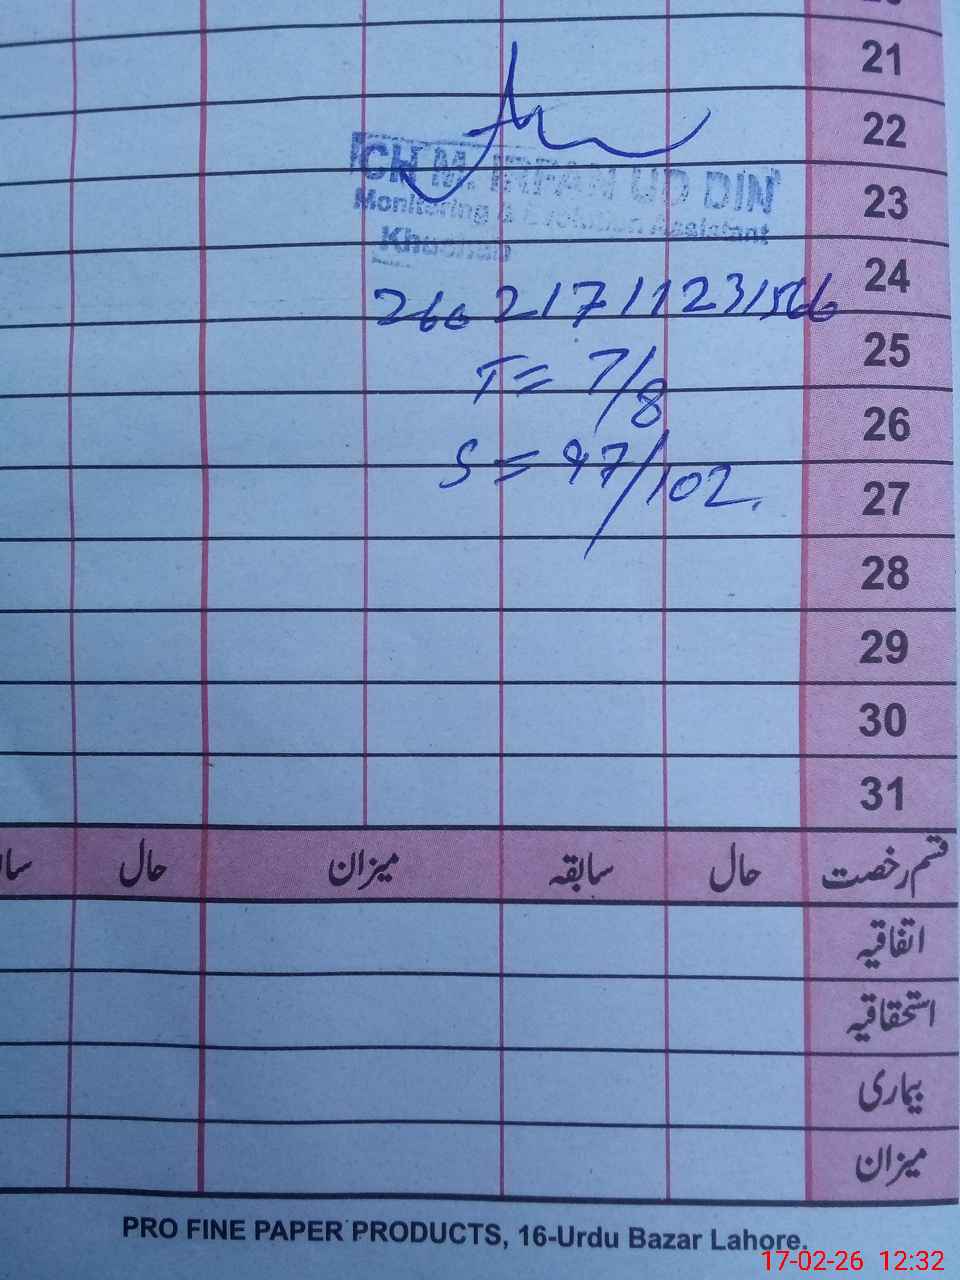 21
22
CH M. IRFAN UD DIN
23
Monitoring & Assistant
24
26021711231566
25
T = 7/8
26
S = 97/102
27
28
29
30
31
قسم رخصت حال سابقہ میزان حال
اتفاقیہ
استحقاقیہ
بیماری
میزان
PRO FINE PAPER PRODUCTS, 16-Urdu Bazar Lahore.
17-02-26 12:32